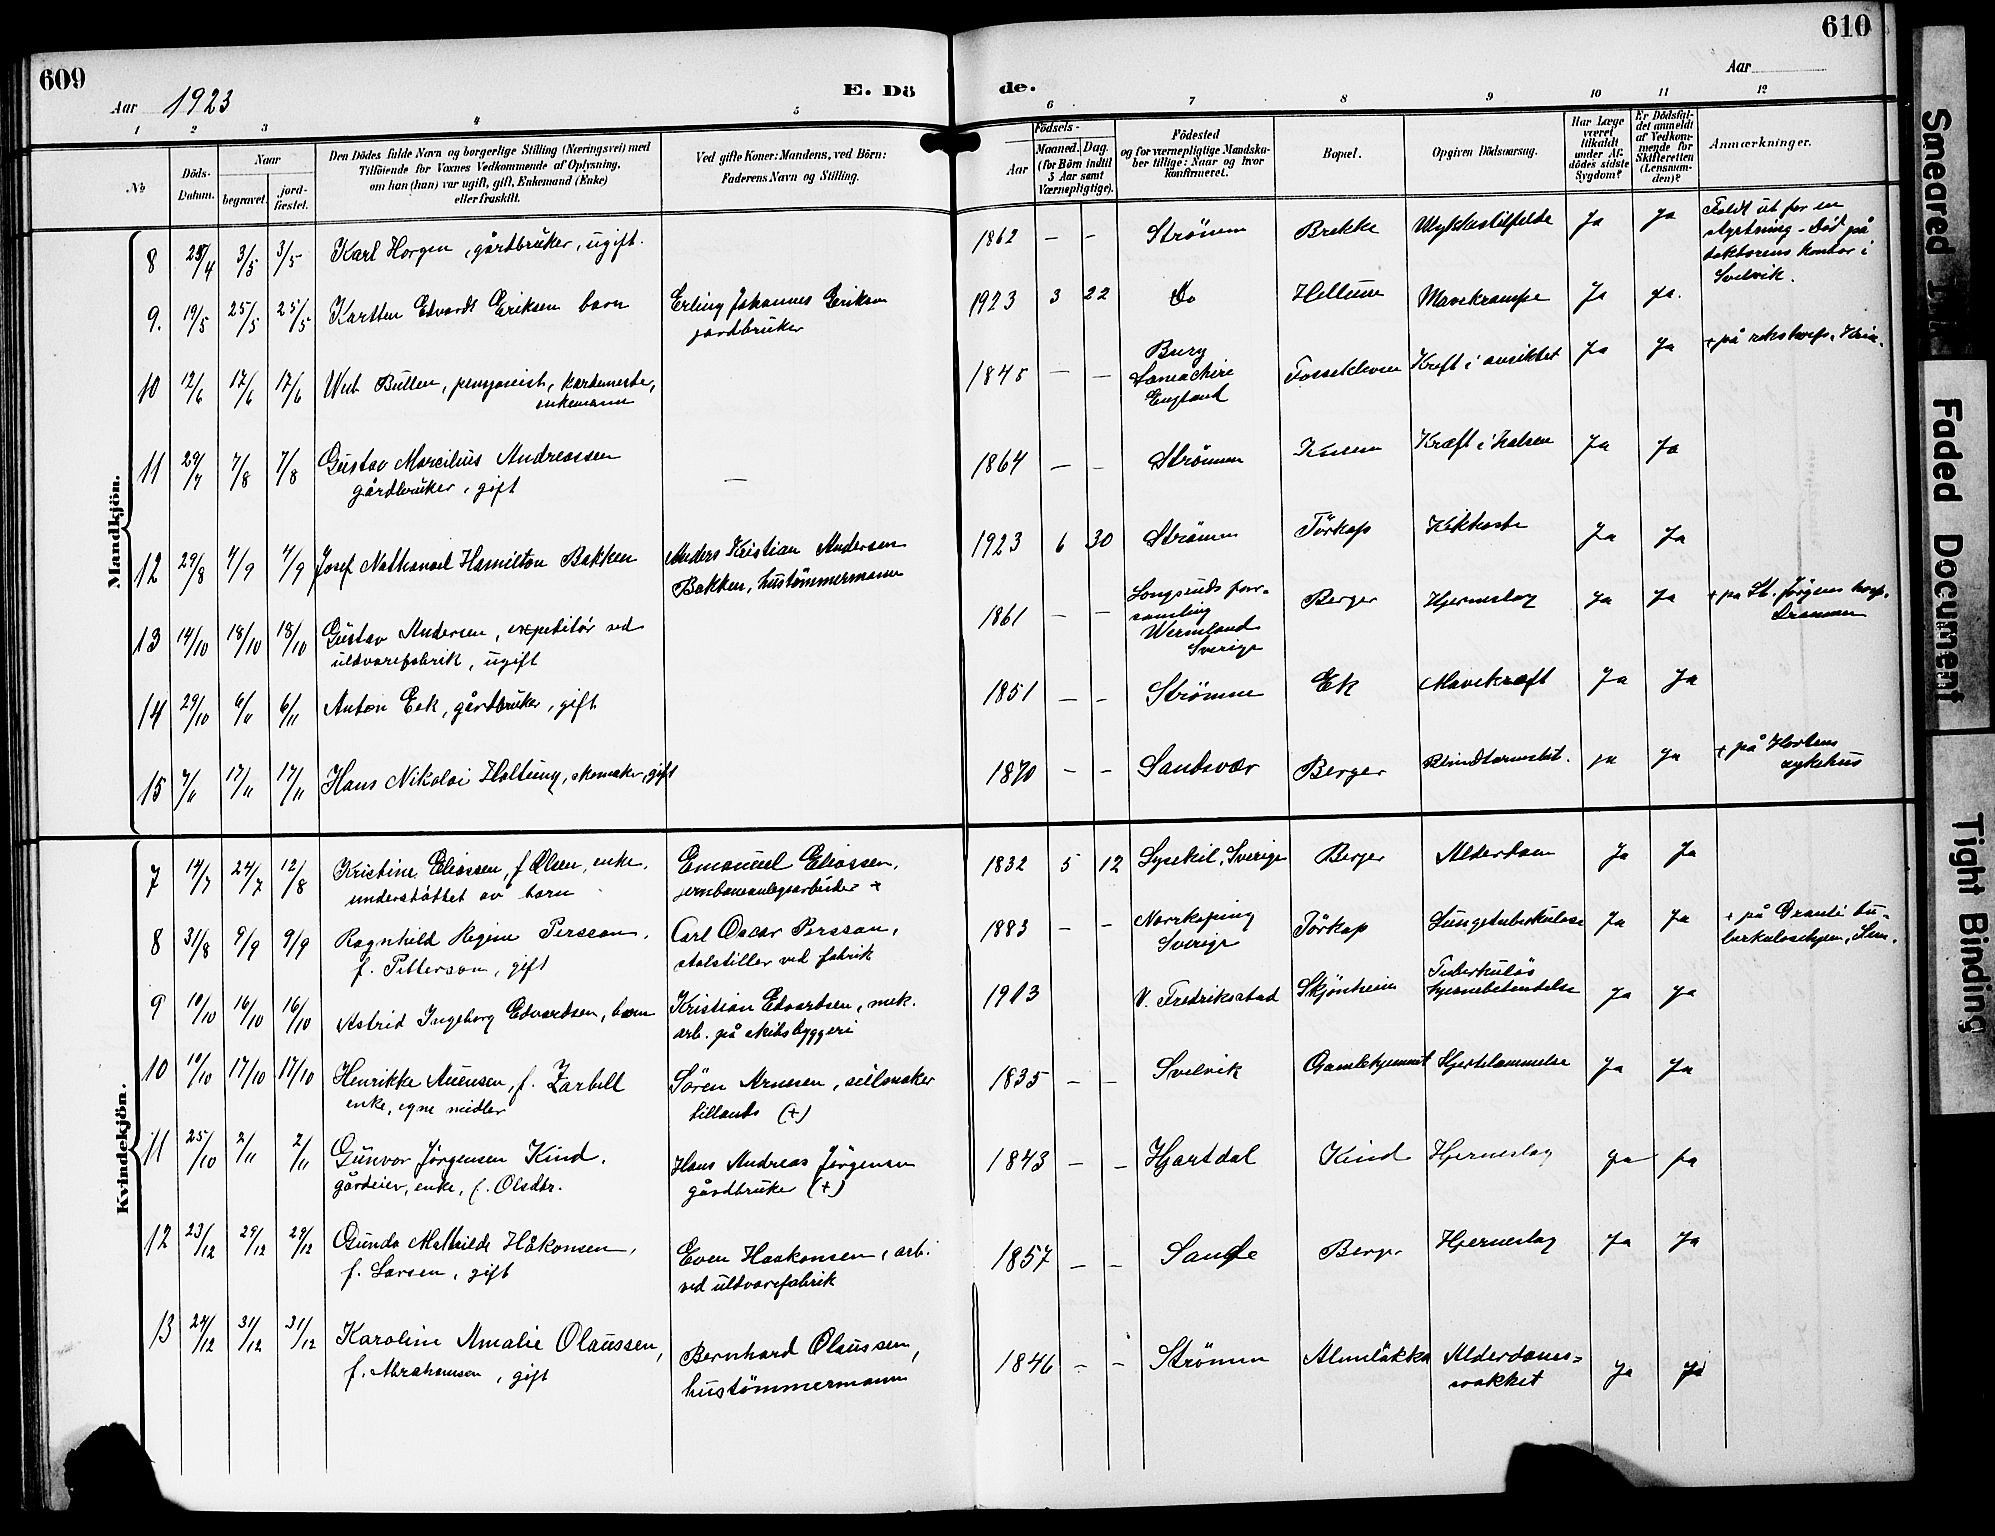 609
610
Aar 1923
E. Dö de.
Aar
1 2 3 4 5 6 7 8 9 10 11 12
No
Döds-Datum.
Naar
begravet.
jord-fæstet.
Den Dödes fulde Navn og borgerlige Stilling (Næringsvei) med
Tilföiende for Voxnes Vedkommende af Oplysning,
om han (hun) var ugift, gift, Enkemand (Enke)
eller fraskilt.
Ved gifte Koner: Mandens, ved Börn:
Faderens Navn og Stilling.
Födsels-
Aar
Maaned. Dag.
(for Börn indtil
5 Aar samt
Værnepligtige).
Födested
og for værnepligtige Mandska-
ber tillige: Naar og hvor
Konfirmeret.
Bopæl.
Opgiven Dödsaarsag.
Har Læge
været
tilkaldt
under Af-
dödes sidste
Sygdom?
Er Dödsfal-
det anmeldt
af Vedkom-
mende for
Skifteretten
(Lensman-
den)?
Anmærkninger.
Mandkjön.
8 3/5 3/5 Karl Horgen, gårdbruker, ugift. 1862 – – Strömm Brekke Ulykkestilfelde Ja Ja Faldt ut for en
styrtning - Död på
doktorens kontor i
Svelvik.
9. 19/5 25/5 25/5 Karsten Edvardt Eriksen barn Erling Johannes Eriksen
jordbruker 1923 3 22 Do Hellum Mavekrampe Ja ja.
10 12/6 17/6 17/6 Bullen, pensjonist, kartemester,
enkemann 1845 – – Bury
England Fossekleven Kreft i ansiktet Ja Ja + på rikshosp.
11 29/7 7/8 7/8 Gustav Marcilius Andreassen
gårdbruker, gift – 1864 – – Strömmen Kræft i halsen Ja Ja
12 29/8 4/9 4/9 Josef Nathanael Hamilton Bakken Anders Kristian Andersen
Bakken, hustömmermann 1923 6 30 Strömm Törkop Kikhoste Ja Ja
13 14/10 18/10 18/10 Gustav Andersen, expeditör ved
uldvarefabrik, ugift 1861 – – Longseruds for-
samling
Wermland
Sverige Berger Hjerneslag Ja Ja + på St. Jørgens hosp.
Drammen
14 29/10 6/11 6/11 Anton Eek, gårdbruker, gift 1851 – – Strömm Ek Mavekræft Ja Ja
15 7/11 17/11 17/11 Hans Nikolai Holtung, skomaker, gift 1870 – – Sandsvær Berger Blindtarmsbet. ja Ja + på Hortens
sykehus
Kvindekjön.
7 14/7 24/7 12/8 Kristine Eliassen, f. Olsen, enke,
understöttet av barn Emanuel Eliassen,
jernbaneanlegsarbeider + 1832 5 12 Lysekil, Sverige Berger Alderdom Ja Ja
8 31/8 9/9 9/9 Ragnhild Regine Persson,
f. Pitterson, gift Carl Oscar Persson,
stolstiller ved fabrik 1883 – – Norrkoping
Sverige Törkop Lungetuberkulose Ja Ja + på Granli tu-
berkulosehjem,
9 10/10 16/10 16/10 Astrid Ingeborg Edvardsen, barn Kristian Edvardsen, mek.
arb. på skibsbyggeri 1913 V. Fredrikstad Skjönheim Tuberkulös
hjernebetendelse Ja Ja
10 10/10 17/10 17/10 Henrikke Arnesen, f. Zarbell
enke, egne midler Sören Arnesen, seilmaker
tillands (+) 1835 – – Svelvik Gamlehjemmet Hjertelammelse Ja Ja
11 25/10 2/11 2/11 Gunvor Jörgensen Kind,
gårdeier, enke, f. Olsdtr. Hans Andreas Jörgensen
gårdbruker (+) 1843 – – Hjartdal Kind Hjerneslag Ja Ja
12 23/12 29/12 29/12 Gunda Mathilde Håkonsen,
f. Larsen, gift Even Haakonsen, arb.
ved uldvarefabrik 1857 – – Sande Berger Hjerneslag Ja Ja
13 24/12 31/12 31/12 Karoline Amalie Olaussen,
f. Abrahamsen, gift Bernhard Olaussen,
hustömmermann 1846 – – Strömm Almelökka Alderdoms-
svakket Ja Ja
Smeared
Faded Document
Tight Binding